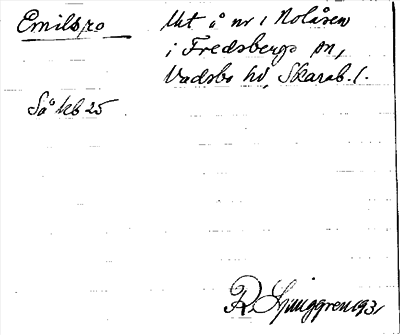 Emilsro Utt å nr 1 Rolåsen
i Fredsbergs sn,
Vadsbo hd, Skarab. l.
Så kb 25
R. Ljunggren 1931